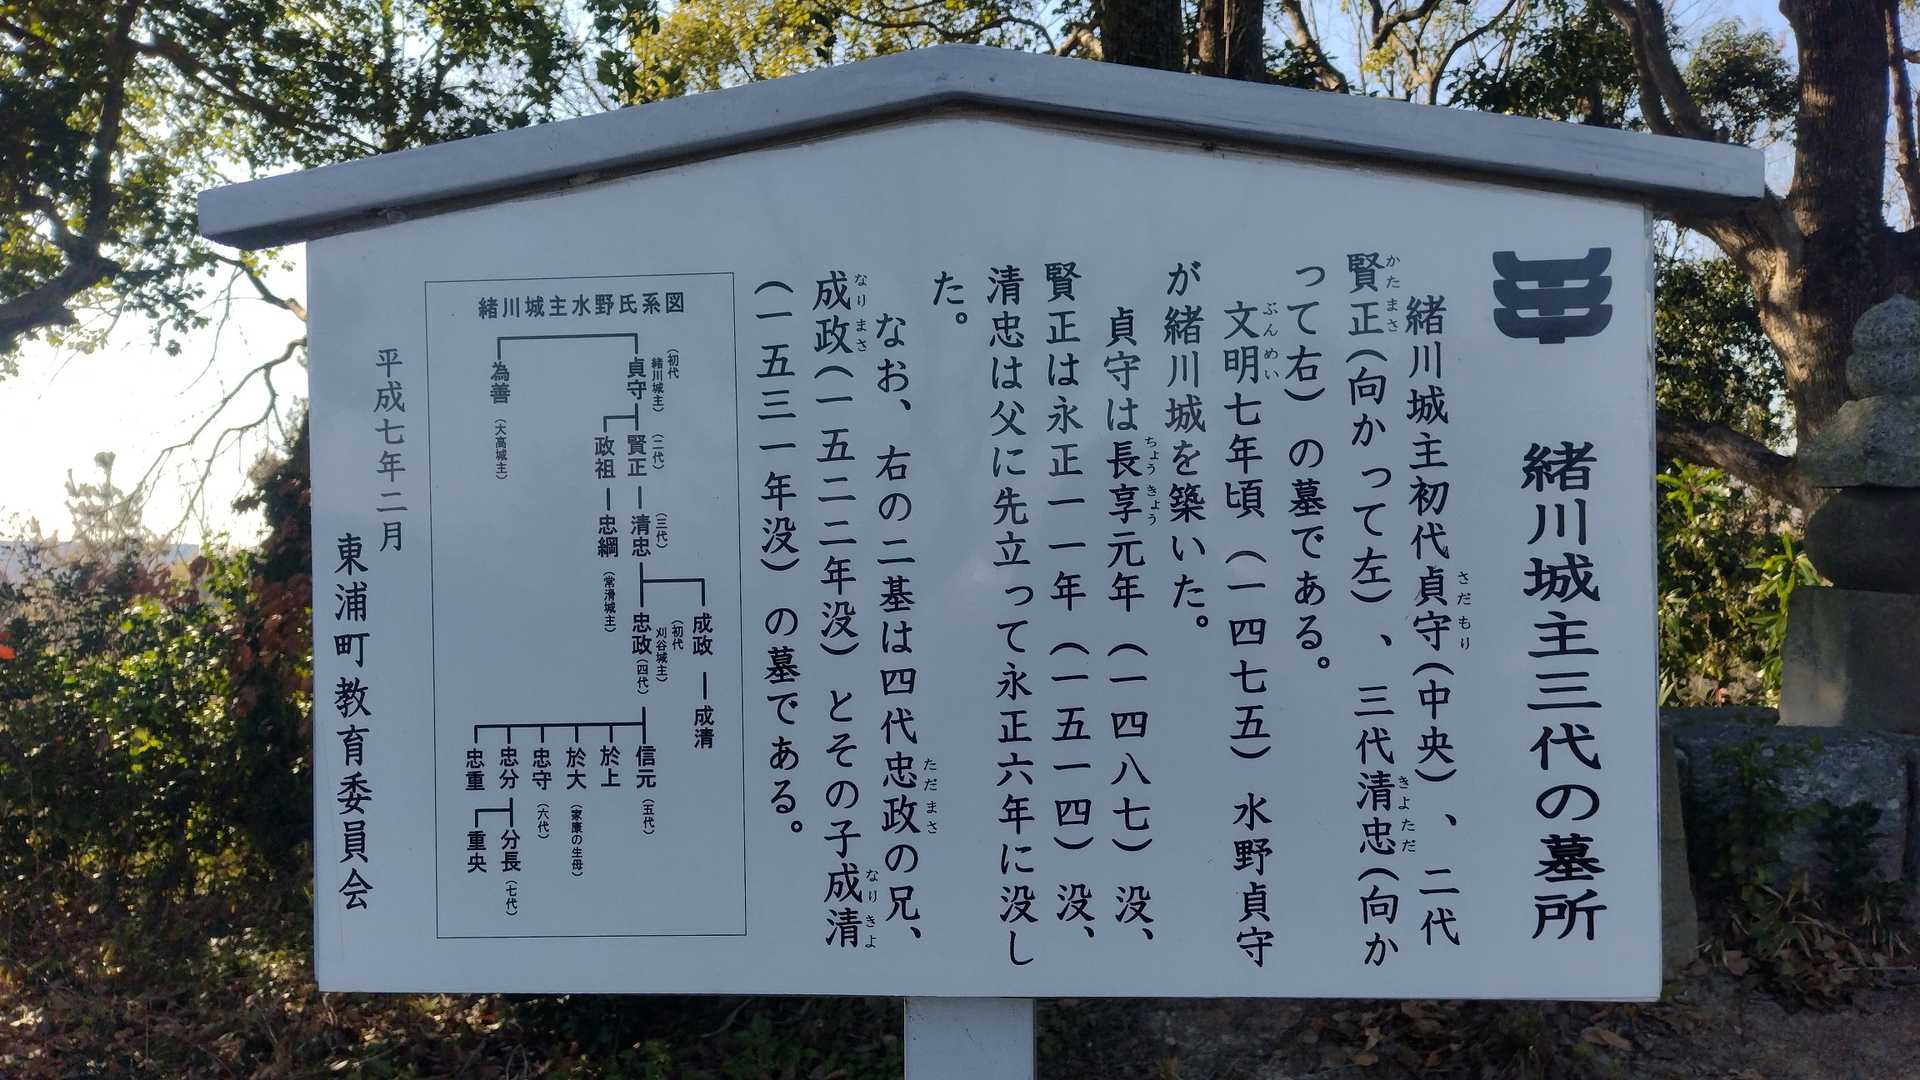 緒川城主三代の墓所
緒川城主初代貞守(中央)、二代
さだもり
賢正(向かって左)、三代清忠(向か
かたまさ
きよただ
って右)の墓である。
文明七年頃(一四七五)水野貞守
ぶんめい
が緒川城を築いた。
貞守は長享元年(一四八七)没、
ちょうきょう
賢正は永正一一年(一五一四)没、
清忠は父に先立って永正六年に没し
た。
なお、右の二基は四代忠政の兄、
ただまさ
成政(一五二二年没)とその子成清
なりまさ
なりきよ
(一五三一年没)の墓である。
緒川城主水野氏系図
貞守
(初代
緒川城主)
為善
(大高城主)
賢正
(二代)
政祖
忠綱
(常滑城主)
清忠
(三代)
成政
成清
忠政
(初代
刈谷城主)
(四代)
信元
(五代)
於上
於大
(家康の生母)
忠守
(六代)
忠分
忠重
分長
(七代)
重央
平成七年二月
東浦町教育委員会